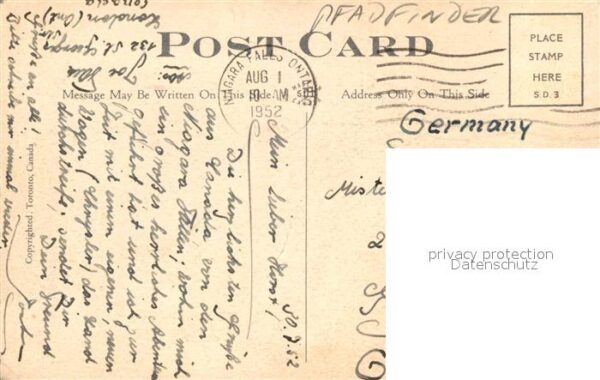 PFADFINDER
POST CARD
PLACE
STAMP
HERE
S.D.3
NIAGARA FALLS ONTARIO
AUG 1
10 AM
1952
Message May Be Written On This Side
Address Only On This Side
Germany
Miste
privacy protection
Datenschutz
30.7.52
Mein lieber Horst,
Die herzlichsten Grüße
aus Kanada von den
Niagara Fällen, wohin mich
ein großes herrliches Abenteuer
geführt hat und ich zur
Zeit mit einem eigenen, neuen
Wagen (Chrysler) das Land
durchstreife, sendet Dir
Dein Freund
Grüße an alle!
Bitte schreibe mir einmal wieder
132 St. George
London (Ont)
Canada
Copyrighted. Toronto, Canada